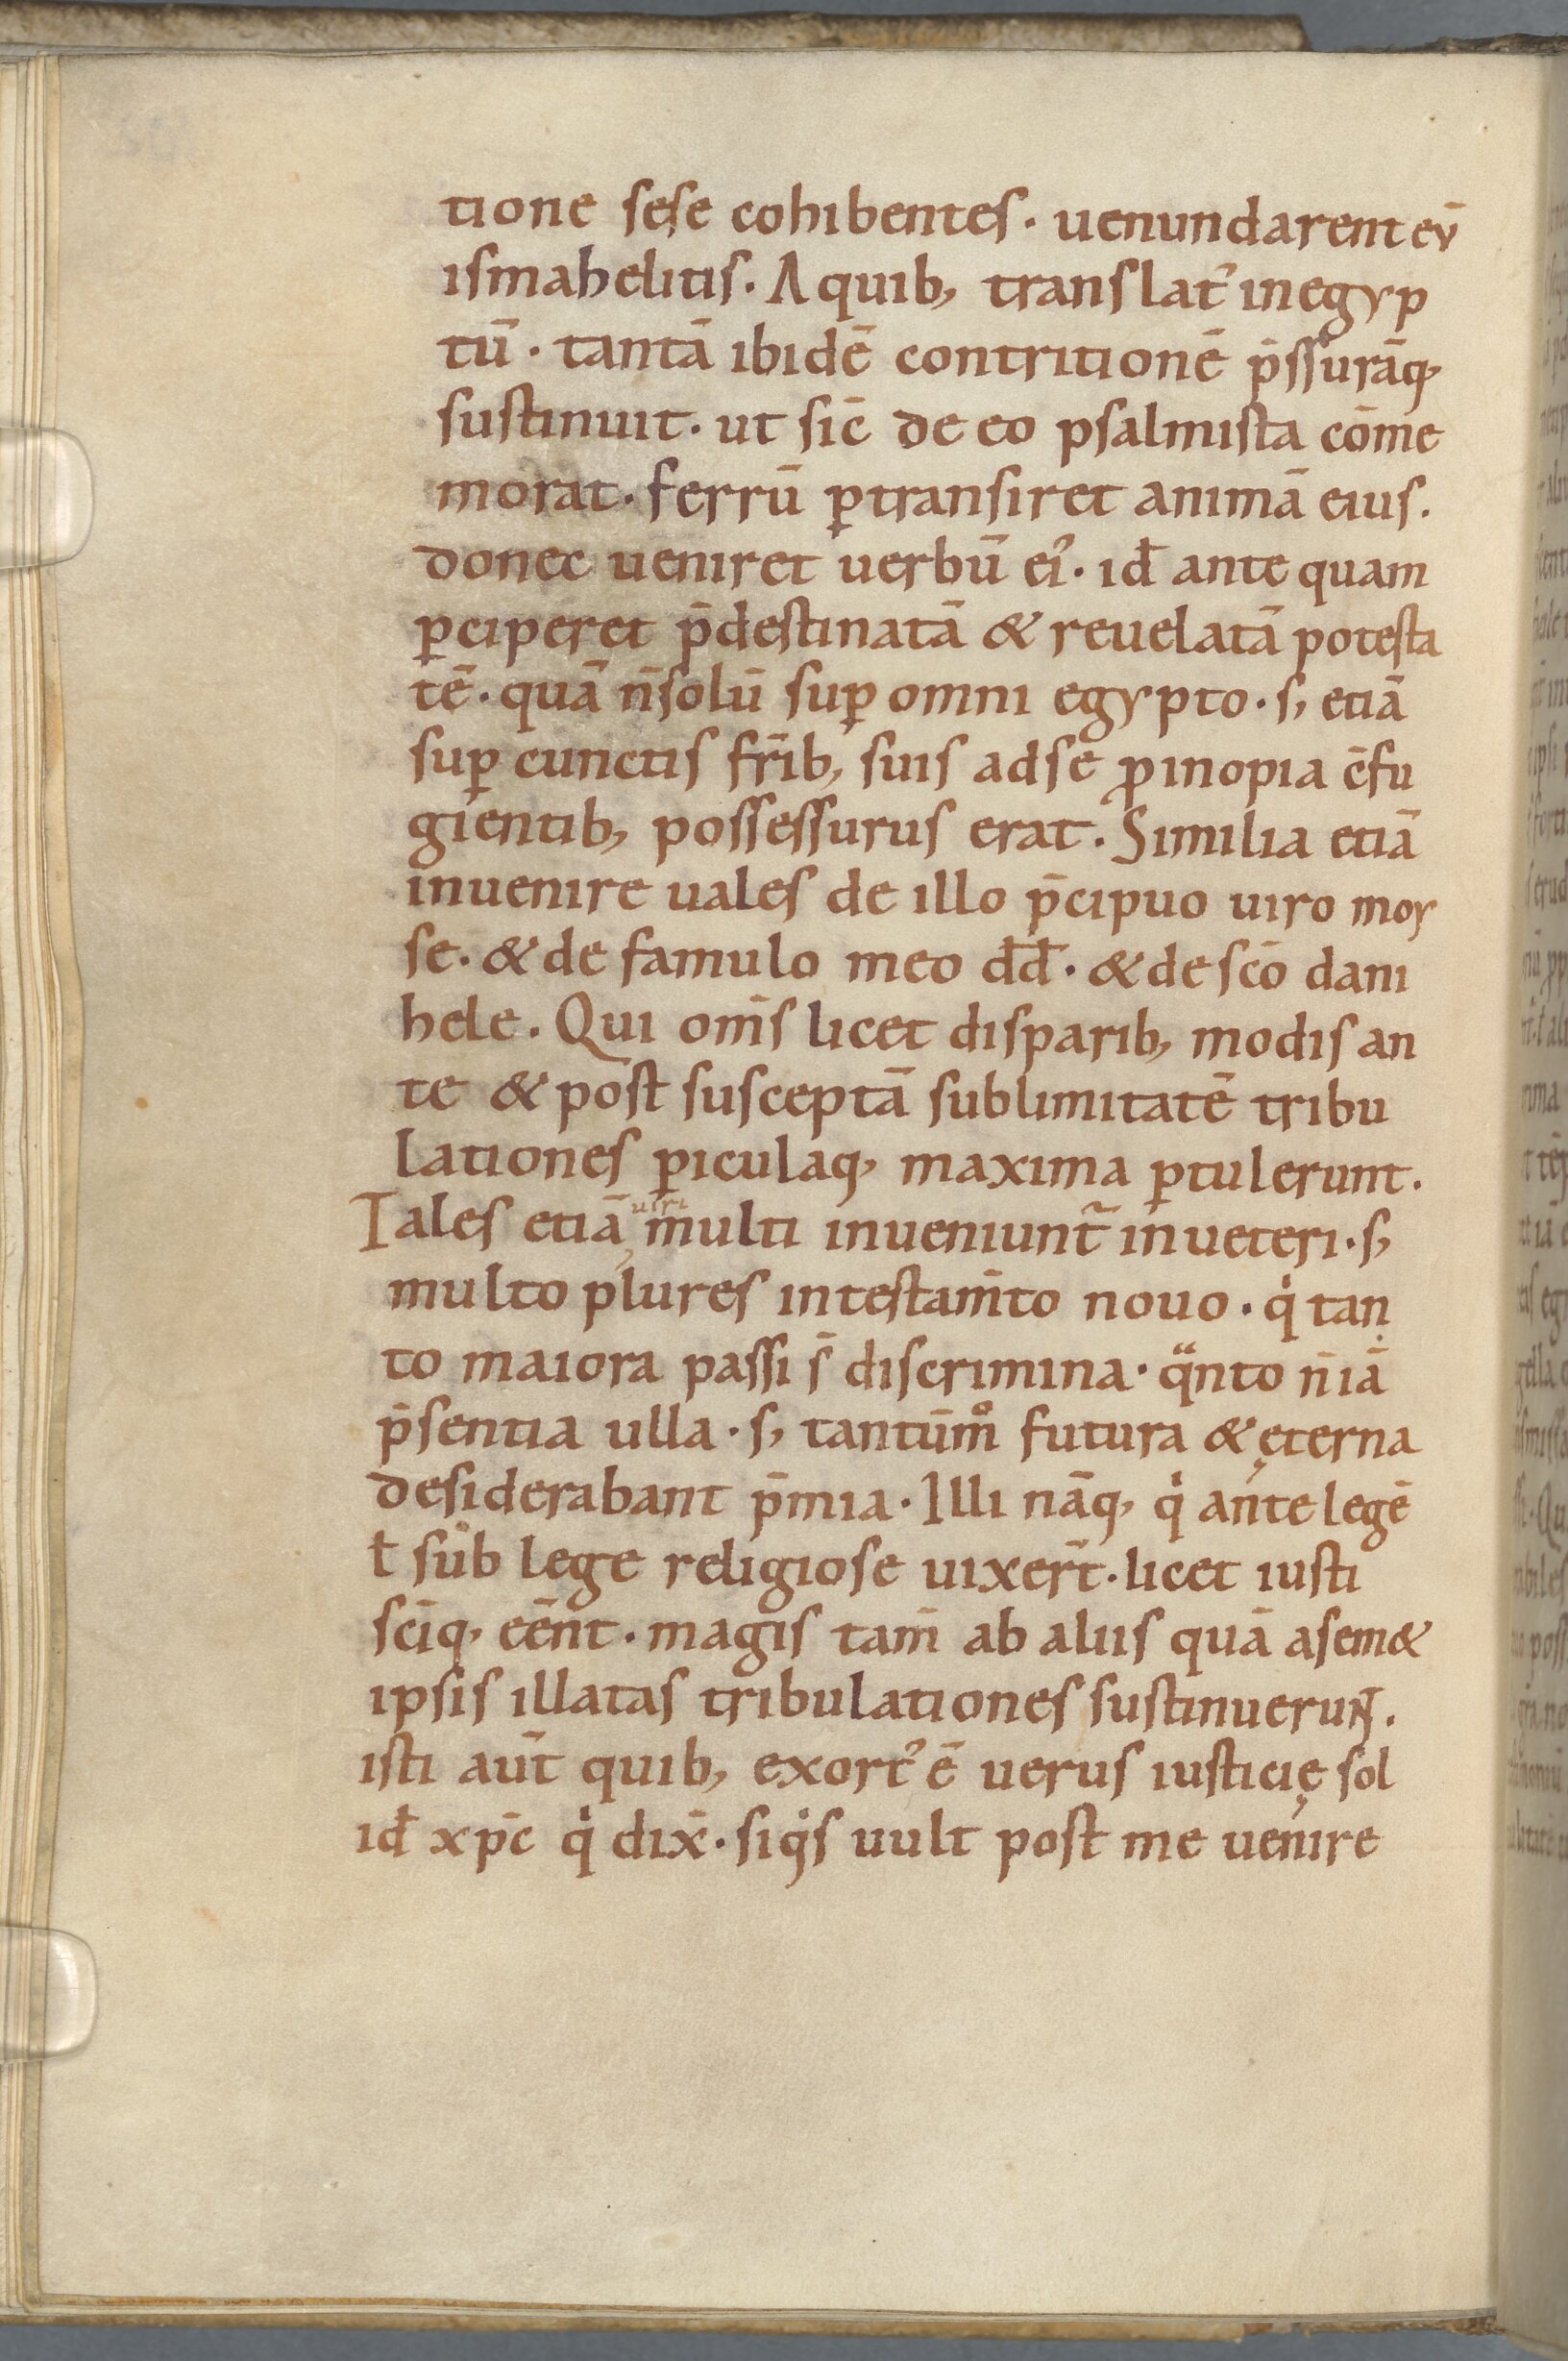 tione sese cohibentes · uenundarent eū
ismahelitis. A quib, translat' in egyp
tū · tantā ibidē contritionē p̄ssurāq,
sustinuit · ut sic̄ de eo psalmista cōme
morat · ferrū ꝑtransiret animā eius.
donec ueniret uerbū ei' · id̄ ante quam
ꝑciperet p̄destinatā & reuelatā potesta
tē · quā n̄ solū suꝑ omni egypto · s, etiā
suꝑ cunctis fr̄ib, suis ad se ꝓ inopia c̄fu
gientib, possessurus erat. Similia etiā
inuenire uales de illo p̄cipuo uiro moy
se · & de famulo meo dd̄ · & de sc̄o dani
hele. Qui om̄s licet disparib, modis an
te & post susceptā sublimitatē tribu
lationes ꝑiculaq, maxima ꝑtulerunt.
Tales etiā uiri multi inueniunt̄ in ueteri · s,
multo plures in testam̄to nouo · qi tan
to maiora passi s̄ discrimina · qanto n̄ iā
p̄sentia ulla · s, tantūmo futura & ęterna
desiderabant p̄mia · Illi nāq, qi ante legē
ł sub lege religiose uixer̄t · licet iusti
sc̄iq, eēnt · magis tam̄ ab aliis quā a sem&
ipsis illatas tribulationes sustinuerunt.
isti aut̄ quib, exort' ē uerus iusticię sol
id̄ xp̄c qi dix̄ · siqis uult post me uenire